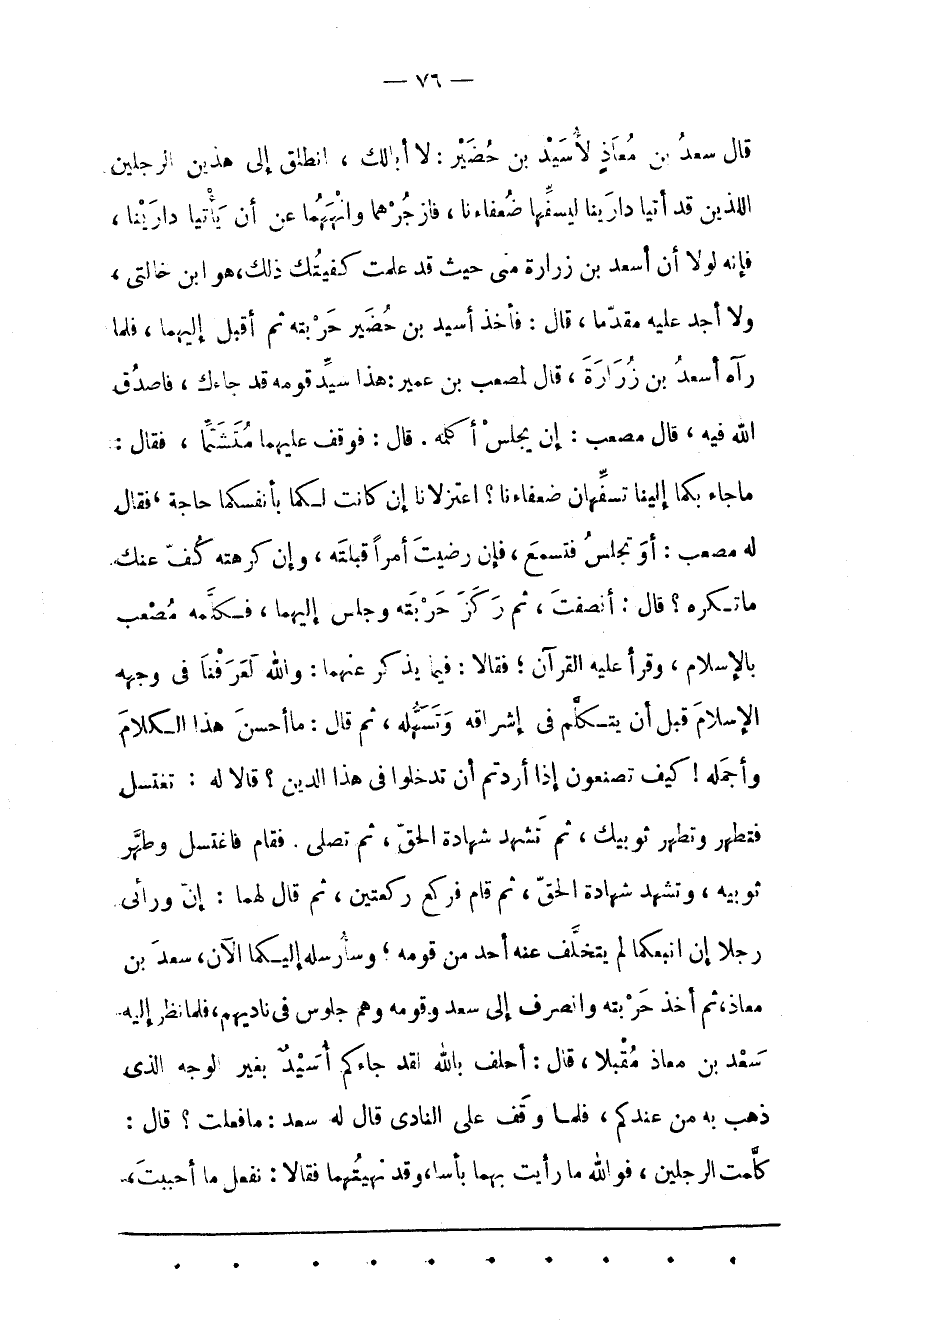 — ٧٦ —
قال سعدُ بن مُعاَذٍ لأُسَيْد بن حُضَيْر : لا أبالك ، انطلق إلى هذين الرجلين
اللذين قد أتيا دارَينا ليسفِّها ضُعفاءنا ، فازجُرْهما وانْهَهُما عن أن يَأْتيا دارَيْنا ،
فإنه لولا أن أسعد بن زرارة منى حيث قد علمت كفيتُك ذلك، هو ابن خالتى ،
ولا أجد عليه مقدّما ، قال : فأخذ أسيد بن حُضَير حَرْبته ثم أقبل إليهما ، فلما
رآه أسعدُ بن زُرَارَةَ ، قال لمصعب بن عمير: هذا سيِّد قومه قد جاءك ، فاصدُق
الله فيه ، قال مصعب : إن يجلسْ أكلمه . قال : فوقف عليهما مُتَشَتِّمًا ، فقال :
ماجاء بكما إلينا تسفِّهان ضعفاءنا ؟ اعتزلانا إن كانت لكما بأنفسكما حاجة ، فقال
له مصعب : أوَ تجلسُ فتسمعَ ، فإن رضيتَ أمراً قبلتَه ، وإن كرهته كُفّ عنك
ماتكره ؟ قال : أنصفتَ ، ثم رَكَزَ حَرْبَته وجلس إليهما ، فكلَّمه مُصْعب
بالإسلام ، وقرأ عليه القرآن ؛ فقالا : فيما يذكر عنهما : والله لَعَرَفْناَ فى وجهه
الإسلامَ قبل أن يتكلَّم فى إشراقه وَتَسَهُّله ، ثم قال : ماأحسنَ هذا الكلامَ
وأجمَله ! كيف تصنعون إذا أردتم أن تدخلوا فى هذا الدين ؟ قالا له : تغتسل
فتطهر وتطهر ثوبيك ، ثم تَشهد شهادة الحقّ ، ثم تصلى . فقام فاغتسل وطهَّر
ثوبيه ، وتشهد شهادة الحقّ ، ثم قام فركع ركعتين ، ثم قال لهما : إنّ ورائى
رجلا إن اتبعكما لم يتخلَّف عنه أحد من قومه ؛ وسأُرسله إليكما الآن، سعدَ بن
معاذ، ثم أخذ حَرْبته وانصرف إلى سعد وقومه وهم جلوس فى ناديهم، فلما نظر إليه
سَعْد بن معاذ مُقْبلا ، قال : أحلف بالله لقد جاءكم أُسَيْدٌ بغير الوجه الذى
ذهب به من عندكم ، فلما وَقف على النادى قال له سعد : مافعلت ؟ قال :
كلَّمت الرجلين ، فو الله ما رأيت بهما بأسا، وقد نهيتُهما فقالا : نفعل ما أحببتَ،